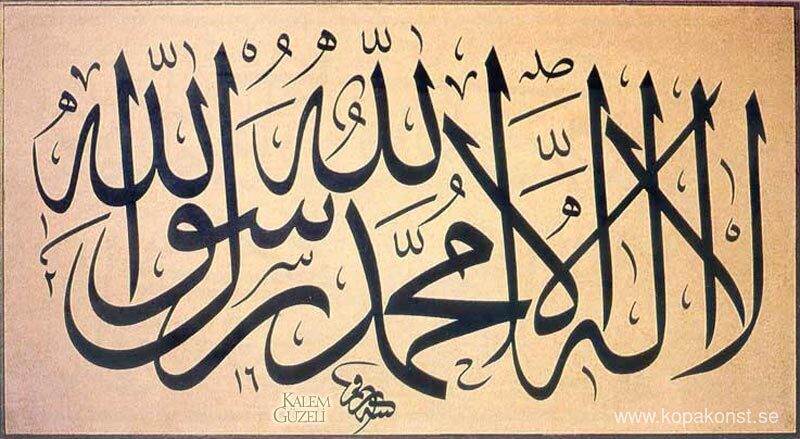 لا إله إلا الله محمد رسول الله
١٢
١٦
KALEM
GÜZELİ
www.kopakonst.se